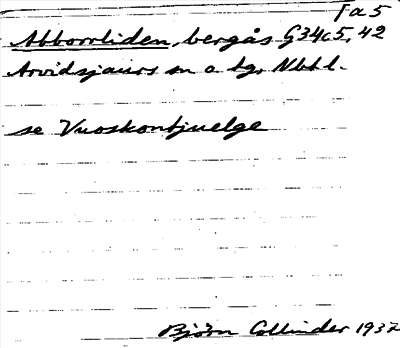 Fa 5
Abborrliden, bergås G34c5, 42
Arvidsjaurs sn o tg, Nbtl.
se Vuoskontjuelge
Björn Collinder 1937